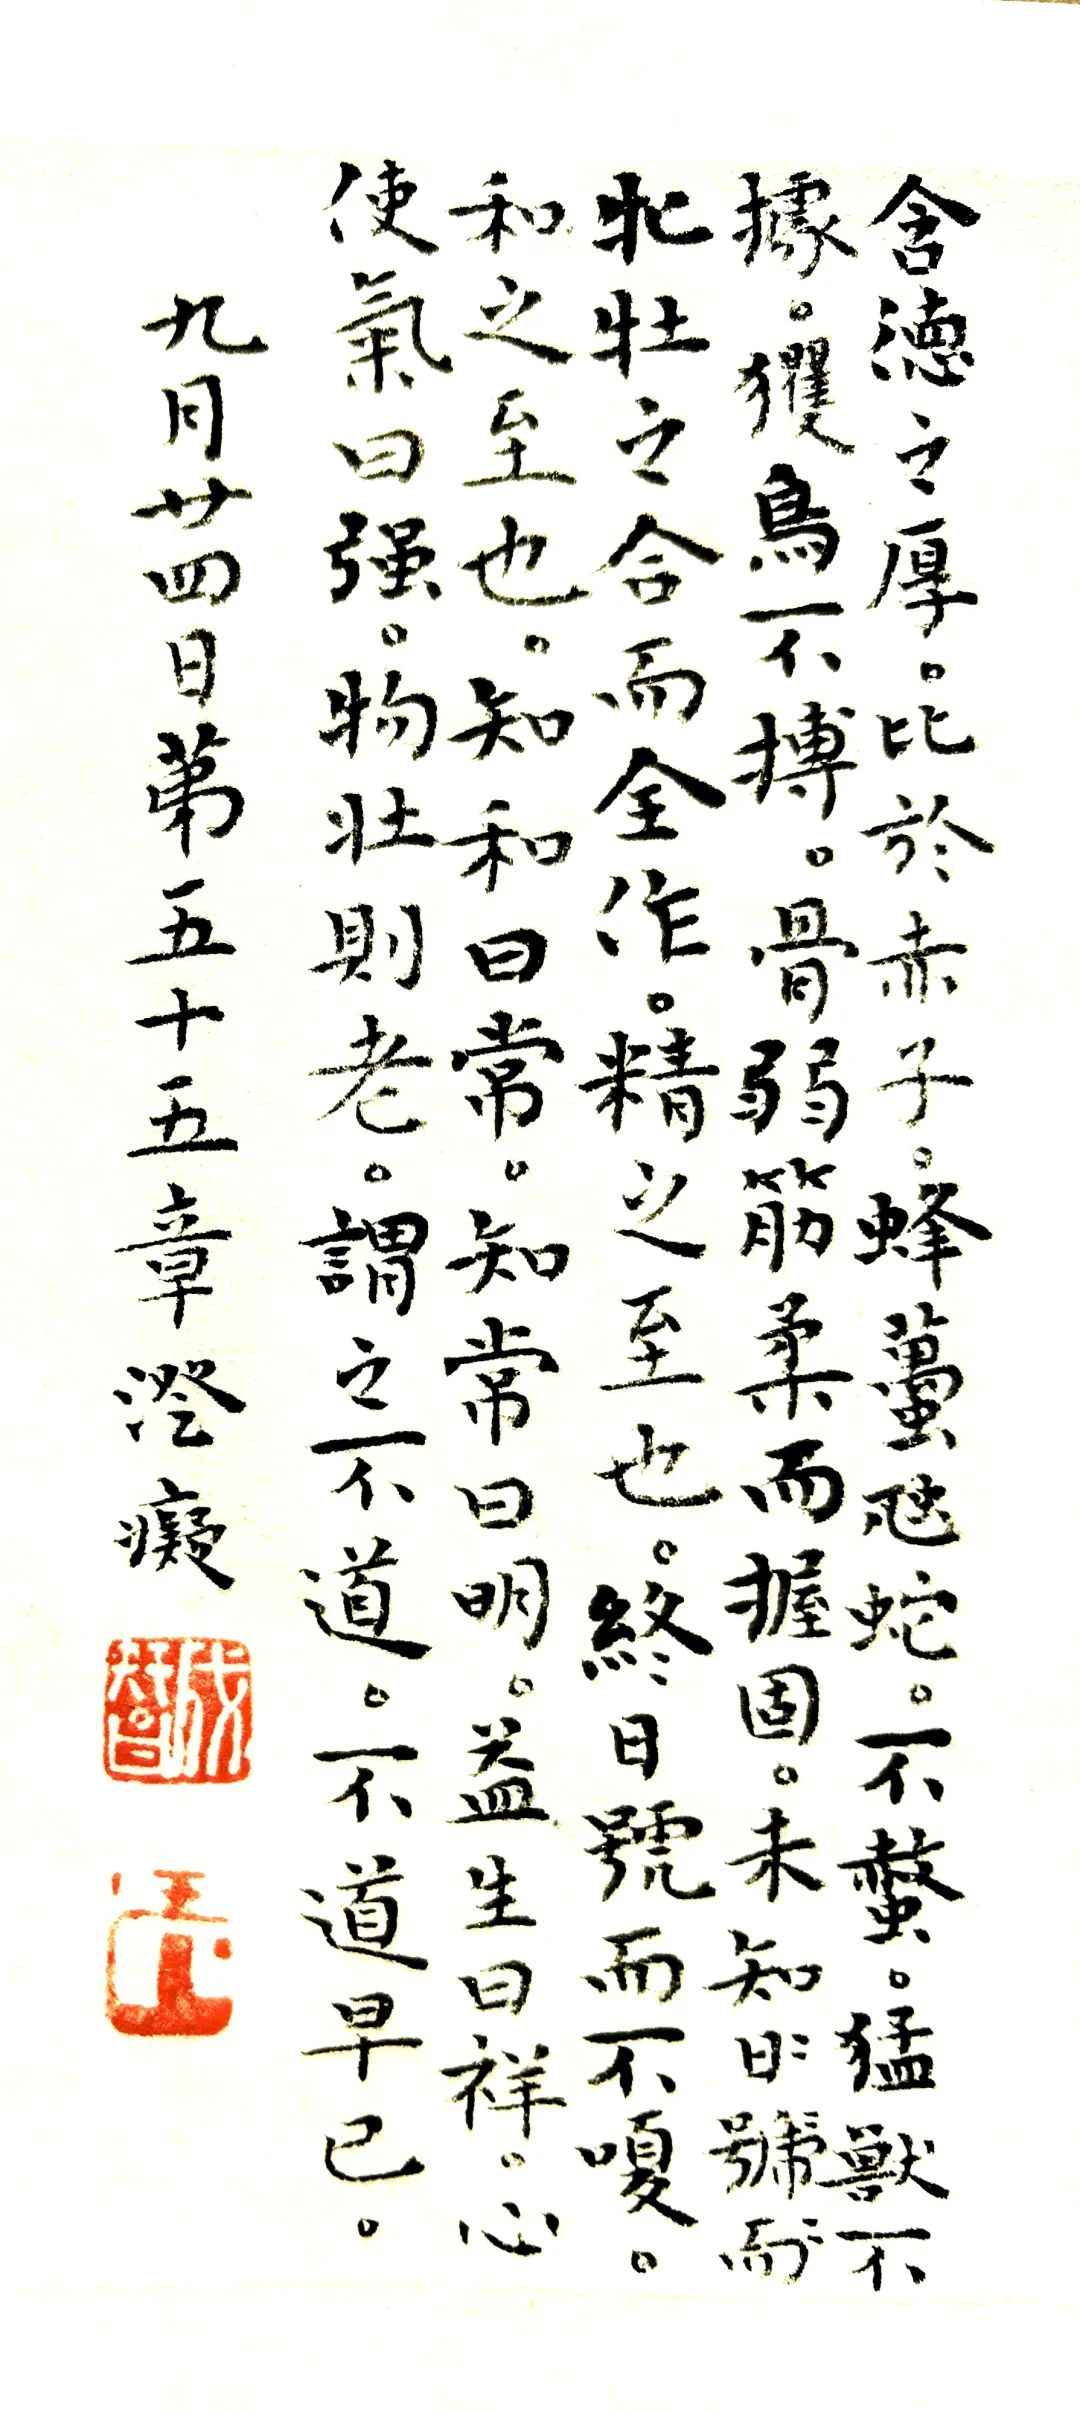 含德之厚。比於赤子。蜂蠆虺蛇。不螫。猛獸不
據。玃鳥不搏。骨弱筋柔而握固。未知日號而
牝牡之合而全作。精之至也。終日號而不嗄。
和之至也。知和曰常。知常曰明。益生曰祥。心
使氣曰强。物壯則老。謂之不道。不道早已。
九月廿四日第五十五章澄癡